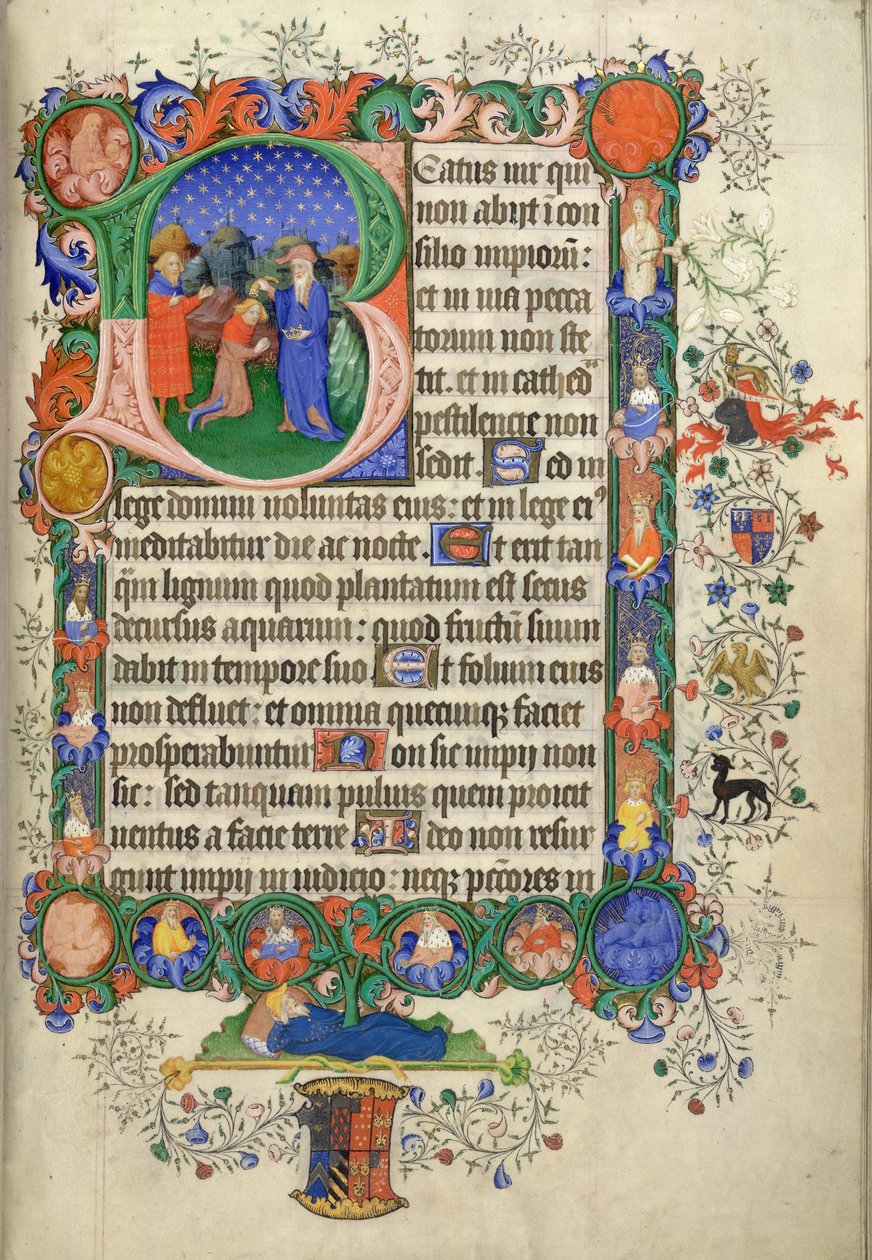 Beatus uir qui
non abijt ī con
silio impiorū:
et in uia pecca
torum non ste
tit. et in cathed᷑
pestilencie non
sedit. Sed in
lege domini uoluntas eius: et in lege ei᷒
meditabitur die ac nocte. Et erit tan
q̄m lignum quod plantatum est secus
decursus aquarum: quod fructū suum
dabit in tempore suo Et folium eius
non defluet: et omnia quecumqꝫ faciet
prosperabuntur Non sic impij non
sic: sed tanquam puluis quem proicit
uentus a facie terre Ideo non resur
gunt impij in iudicio: neqꝫ pc̄cores in